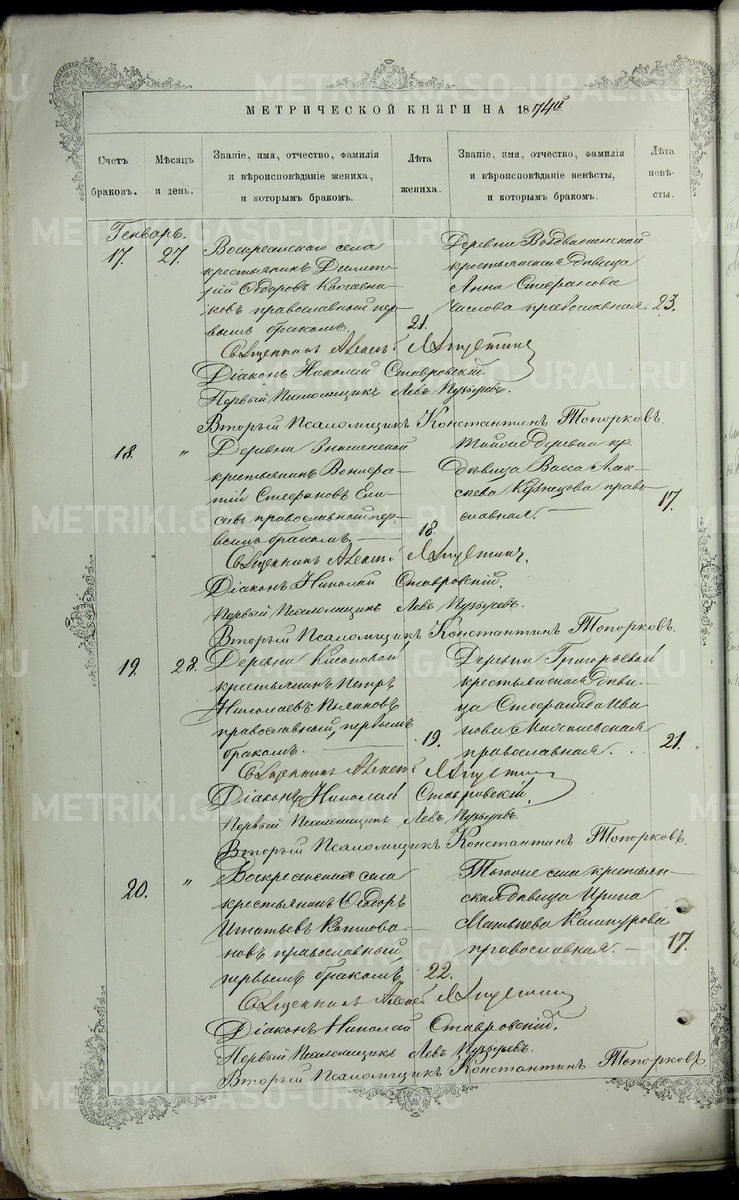 МЕТРИЧЕСКОЙ КНИГИ НА 1874й
Счетъ браковъ.
Мѣсяцъ и день.
Званіе, имя, отчество, фамилія и вѣроисповѣданіе жениха, и которымъ бракомъ.
Лѣта жениха.
Званіе, имя, отчество, фамилія и вѣроисповѣданіе невѣсты, и которымъ бракомъ.
Лѣта невѣсты.
Генварь.
17. 27.
Воскресенскаго села
крестьянинъ Димит-
рій Ѳедоровъ
православный пер-
вымъ бракомъ. 21.
Деревни
крестьянская дѣвица
Анна Стефанова
Числова православная 23.
Священникъ Алексѣй
Діаконъ Николай Ставровскій.
Первый Псаломщикъ Левъ
Вторый Псаломщикъ Константинъ Топорковъ.
18. "
Деревни Знаменской
крестьянинъ Вонифа-
тій Стефановъ Ели-
сѣевъ православный пер-
вымъ бракомъ. 18.
Тойже деревни кр.
дѣвица Васса Алек-
сѣева Кузнецова право-
славная. 17.
Священникъ Алексѣй
Діаконъ Николай Ставровскій.
Первый Псаломщикъ Левъ
Вторый Псаломщикъ Константинъ Топорковъ.
19. 28.
Деревни
крестьянинъ Петръ
Николаевъ
православный, первымъ
бракомъ. 19.
Деревни Григорьевой
крестьянская дѣви-
ца Стефанида Ива-
нова
православная. 21.
Священникъ Алексѣй
Діаконъ Николай Ставровскій.
Первый Псаломщикъ Левъ
Вторый Псаломщикъ Константинъ Топорковъ.
20. "
Воскресенскаго села
крестьянинъ Ѳеодоръ
Игнатьевъ
православный
первымъ бракомъ 22.
Тогоже села крестьян-
ская дѣвица Ирина
Матвѣева
православная. 17.
Священникъ Алексѣй
Діаконъ Николай Ставровскій.
Первый Псаломщикъ Левъ
Вторый Псаломщикъ Константинъ Топорковъ
METRIKI.GASO-URAL.RU